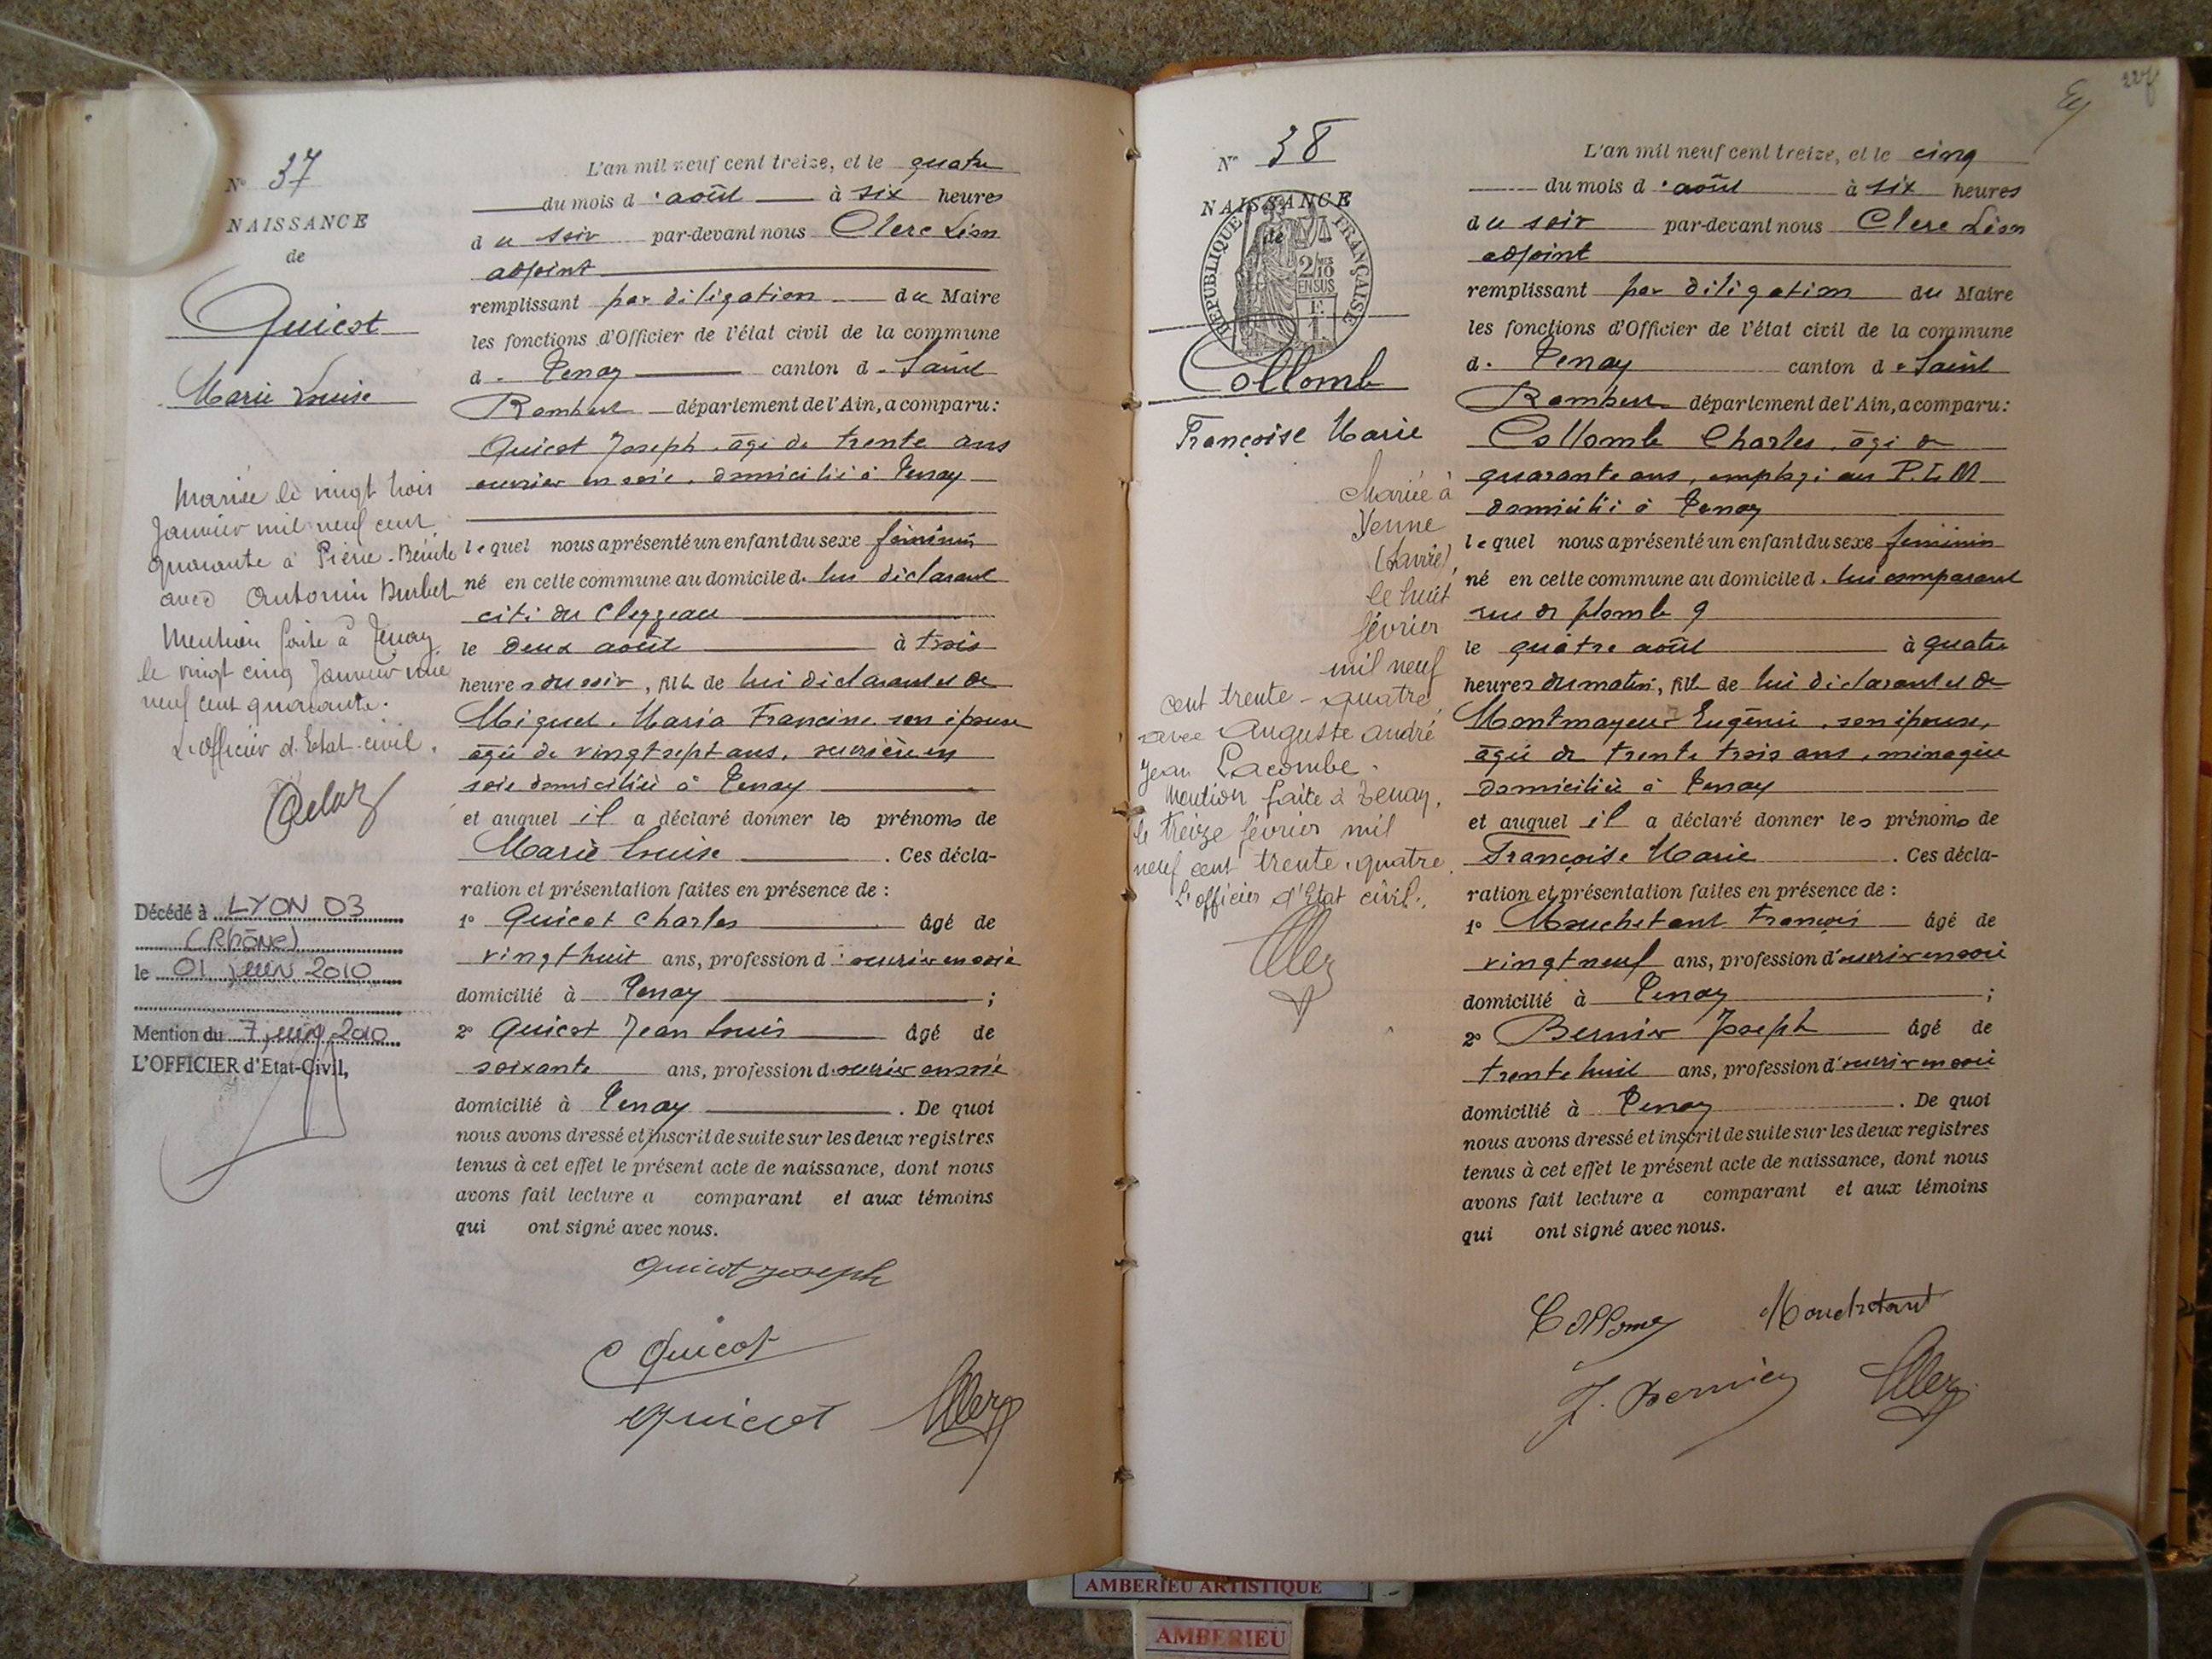 N° 37
NAISSANCE
de
Quicot
Marie Louise
Mariée le vingt trois
Janvier mil neuf cent
quarante à Pierre-Bénite
avec Antonin
Mention faite à Tenay
le vingt cinq Janvier mil
neuf cent quarante.
L'officier d'Etat-civil.
Décédé à LYON 03
(Rhône)
le 01 juin 2010
Mention du 7 juin 2010
L'OFFICIER d'Etat-Civil,
L'an mil neuf cent treize, et le quatre
du mois d'août à six heures
du soir par-devant nous Clerc Léon
adjoint
remplissant par déligation du Maire
les fonctions d'Officier de l'état civil de la commune
d. Tenay canton d. Saint
Rambert département de l'Ain, a comparu:
Quicot Joseph, âgé de trente ans
ouvrier en soie, domicilié à Tenay
lequel nous a présenté un enfant du sexe féminin
né en cette commune au domicile d. lui déclarant
cité du Cleyzeau
le deux août à trois
heures du soir, fille de lui déclarant et de
Miguet, Maria Francine son épouse
âgée de vingt sept ans, ouvrière en
soie domiciliée à Tenay
et auquel il a déclaré donner les prénoms de
Marie Louise . Ces décla-
ration et présentation faites en présence de :
1° Quicot Charles âgé de
vingt huit ans, profession d'ouvrier en soie
domicilié à Tenay ;
2° Quicot Jean Louis âgé de
soixante ans, profession d'ouvrier en soie
domicilié à Tenay . De quoi
nous avons dressé et inscrit de suite sur les deux registres
tenus à cet effet le présent acte de naissance, dont nous
avons fait lecture a comparant et aux témoins
qui ont signé avec nous.
Quicot Joseph
C Quicot
Quicot
N° 38
NAISSANCE
de
REPUBLIQUE FRANÇAISE
2/10 MES
EN SUS
1 F.
Collomb
Françoise Marie
Mariée à
Yenne
(Savoie),
le huit
février
mil neuf
cent trente-quatre
avec Auguste André
Jean Lacombe.
Mention faite à Tenay,
le treize février mil
neuf cent trente-quatre.
L'officier d'Etat civil.
L'an mil neuf cent treize, et le cinq
du mois d'août à six heures
du soir par-devant nous Clerc Léon
adjoint
remplissant par déligation du Maire
les fonctions d'Officier de l'état civil de la commune
d. Tenay canton d. Saint
Rambert département de l'Ain, a comparu:
Collomb Charles, âgé de
quarante ans, employé au P.L.M
domicilié à Tenay
lequel nous a présenté un enfant du sexe féminin
né en cette commune au domicile d. lui comparant
rue de plomb 9
le quatre août à quatre
heures du matin, fille de lui déclarant et de
Montmayeur Eugénie, son épouse,
âgée de trente trois ans, ménagère
domiciliée à Tenay
et auquel il a déclaré donner les prénoms de
Françoise Marie . Ces décla-
ration et présentation faites en présence de :
1° Mouchetant François âgé de
vingt neuf ans, profession d'ouvrier en soie
domicilié à Tenay ;
2° Bernier Joseph âgé de
trente huit ans, profession d'ouvrier en soie
domicilié à Tenay . De quoi
nous avons dressé et inscrit de suite sur les deux registres
tenus à cet effet le présent acte de naissance, dont nous
avons fait lecture a comparant et aux témoins
qui ont signé avec nous.
Collomb Mouchetant
J. Bernier
AMBERIEU ARTISTIQUE
AMBERIEU